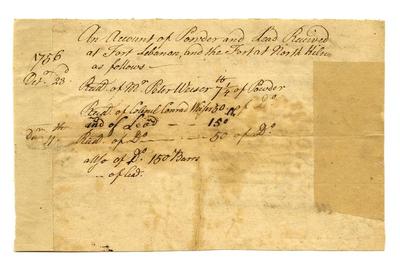 An Account of Powder and Lead Received
at Fort Lebanon, and the Fort at North Kiln
as follows —
1756
Octr. 23d
Recd. of Mr. Peter Weiser 7 1/4 lb of Powder
Recd. of Colonel Conrad Weiser 50 lb. of Do
and of Lead — 150
Decr. 11th
Recd. of Do — 50 of Do.
allso of Do. 150 Barrs
— of lead.